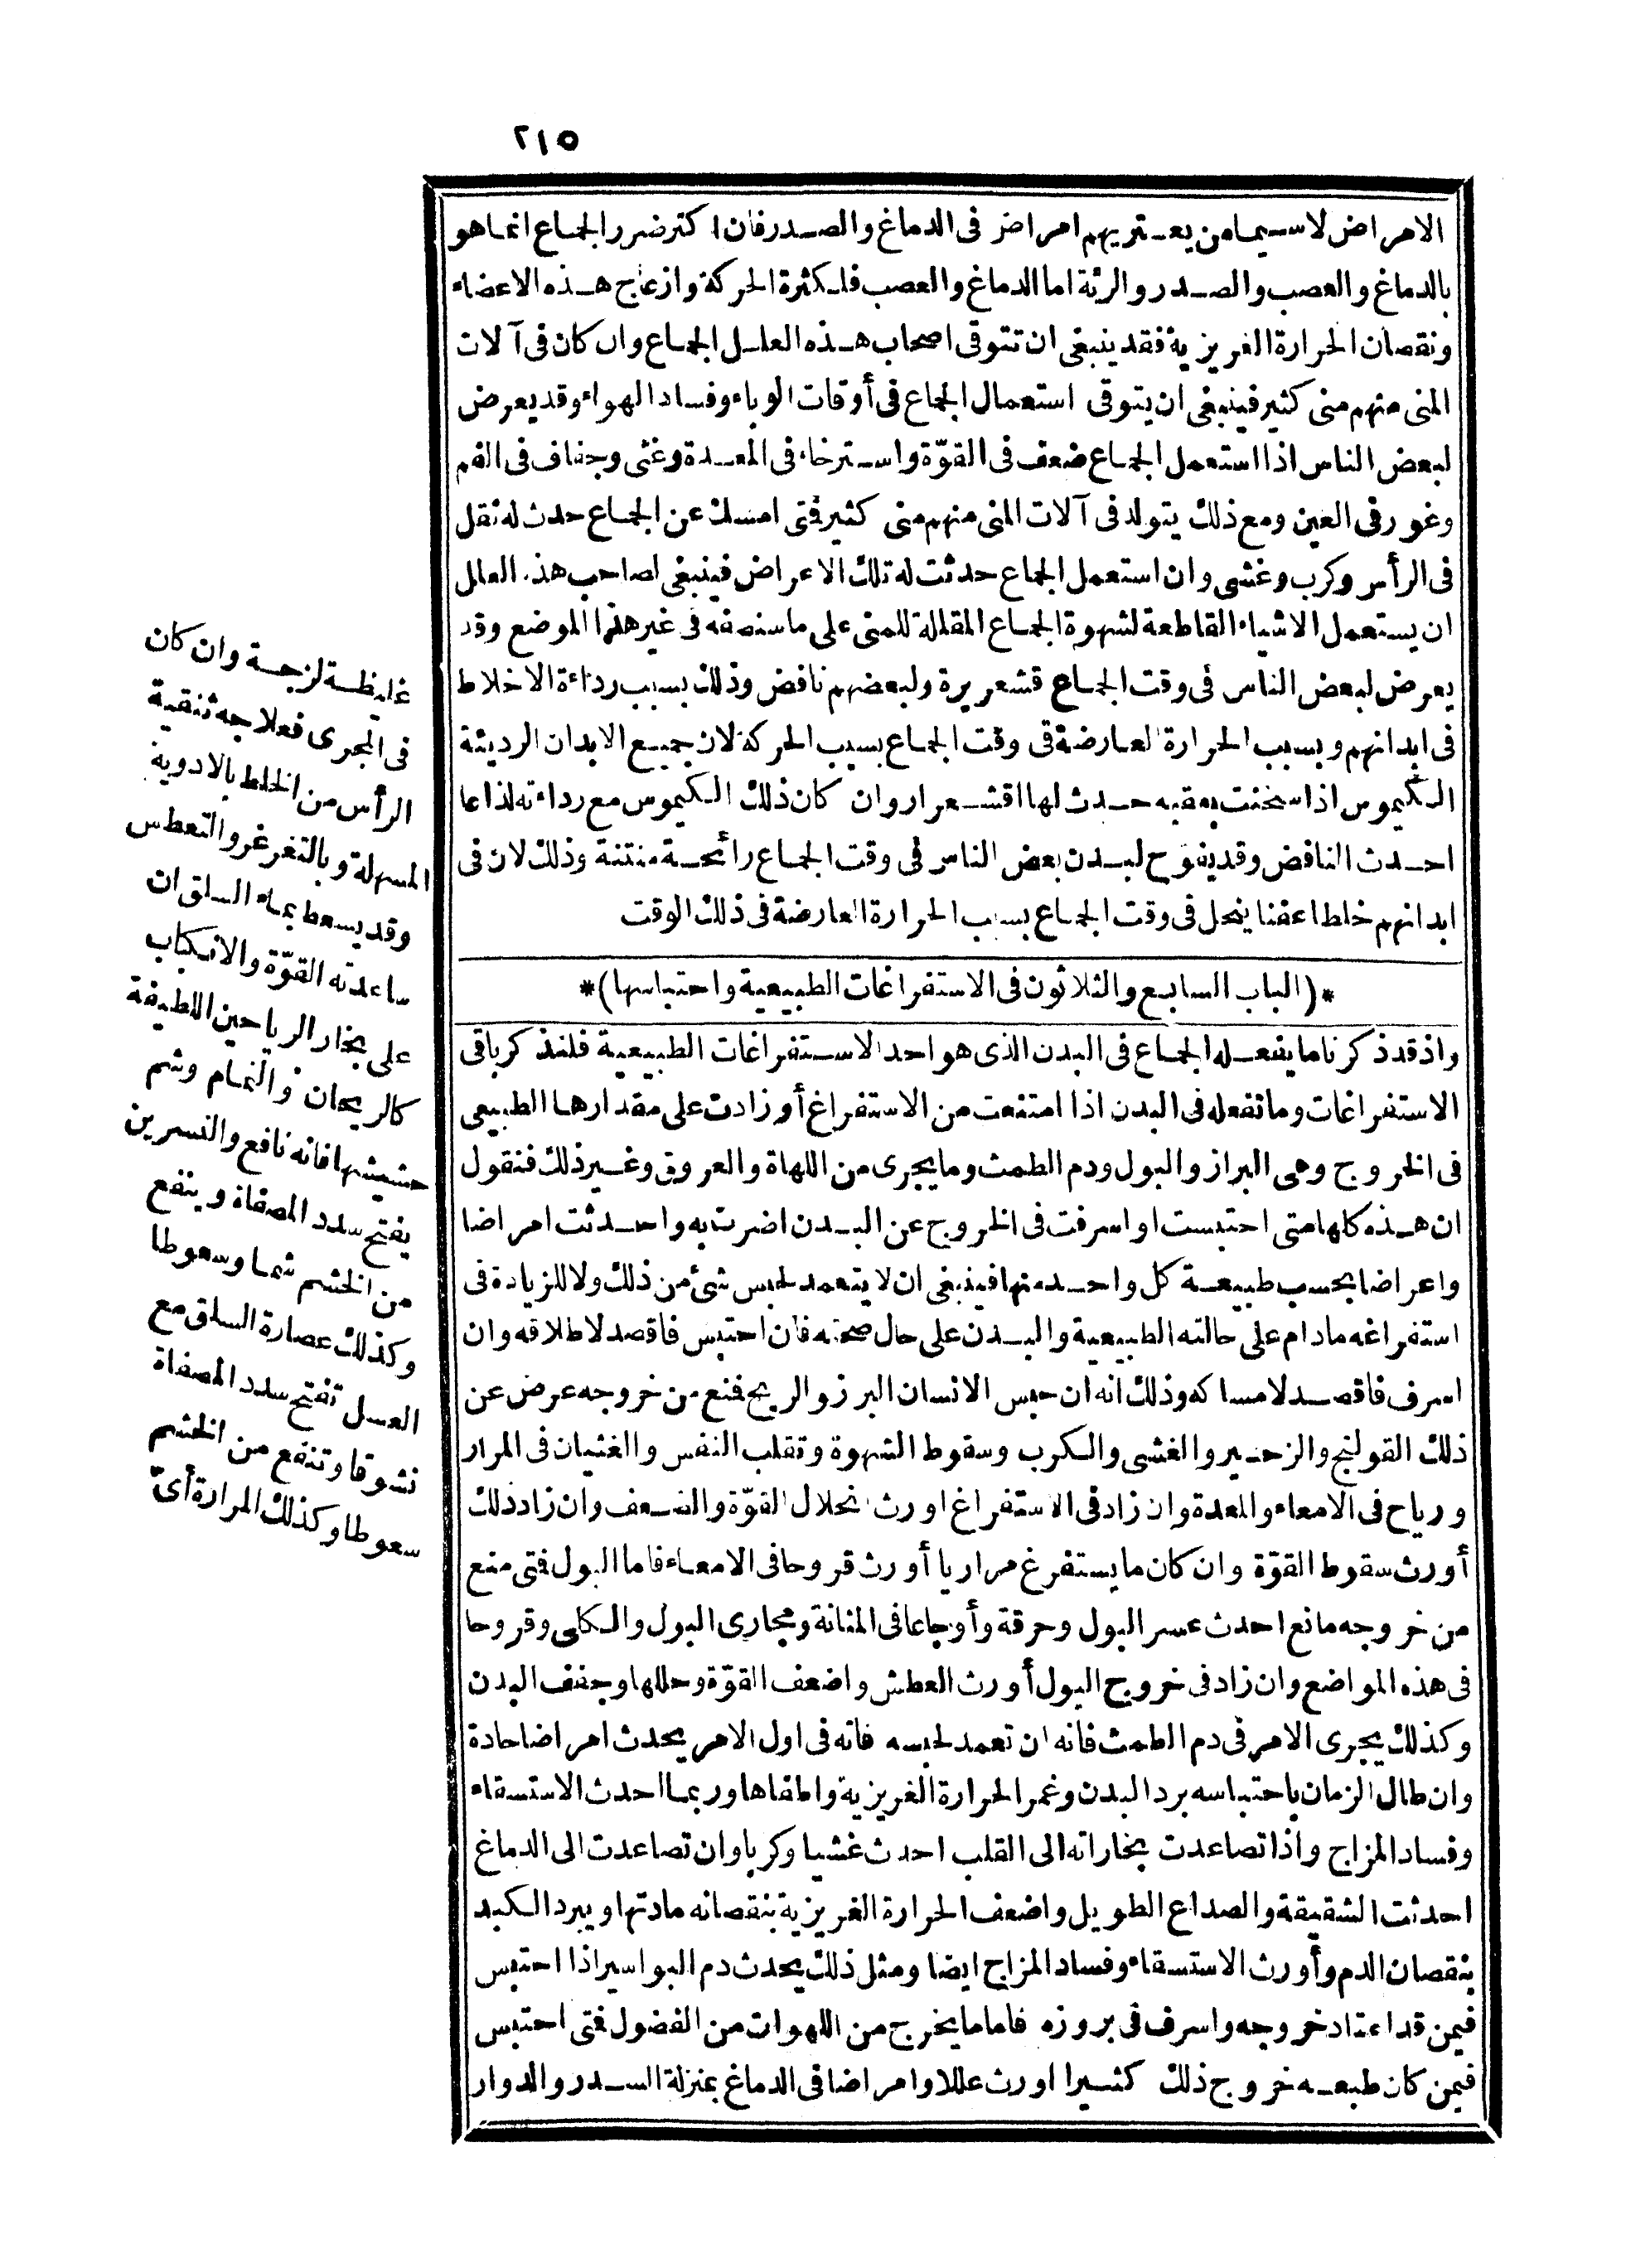 ٢١٥
الامراض لاسيما من يعتريهم امراض فى الدماغ والصدر فان اكثر ضرر الجماع انما هو
بالدماغ والعصب والصدر والرئة اما الدماغ والعصب فلكثرة الحركة وازعاج هذه الاعضاء
ونقصان الحرارة الغريزية فقد ينبغى ان تتوقى اصحاب هذه العلل الجماع وان كان فى آلات
المنى منهم منى كثير فينبغى ان يتوقى استعمال الجماع فى أوقات الوباء وفساد الهواء وقد يعرض
لبعض الناس اذا استعمل الجماع ضعف فى القوّة واسترخاء فى المعدة وغثى وجفاف فى الفم
وغور فى العين ومع ذلك يتولد فى آلات المنى منهم منى كثير فتى امسك عن الجماع حدث له ثقل
فى الرأس وكرب وغشى وان استعمل الجماع حدثت له تلك الاعراض فينبغى لصاحب هذه العلل
ان يستعمل الاشياء القاطعة لشهوة الجماع المقللة للمنى على ما سنصفه فى غير هذا الموضع وقد
يعرض لبعض الناس فى وقت الجماع قشعريرة ولبعضهم نافض وذلك بسبب رداءة الاخلاط
فى ابدانهم وبسبب الحرارة العارضة فى وقت الجماع بسبب الحركة لان جميع الابدان الرديئة
الكيموس اذا سخنت بعقبه حدث لها اقشعرار وان كان ذلك الكيموس مع رداءته لذاعا
احدث النافض وقد يفوح لبدن بعض الناس فى وقت الجماع رائحة منتنة وذلك لان فى
ابدانهم خلطا عفنا ينحل فى وقت الجماع بسبب الحرارة العارضة فى ذلك الوقت
*(الباب السابع والثلاثون فى الاستفراغات الطبيعية واحتباسها)*
واذ قد ذكرنا ما يفعله الجماع فى البدن الذى هو احد الاستفراغات الطبيعية فلنذكر باقى
الاستفراغات وما تفعله فى البدن اذا امتنعت من الاستفراغ أو زادت على مقدارها الطبيعى
فى الخروج وهى البراز والبول ودم الطمث وما يجرى من اللهاة والعروق وغير ذلك فنقول
ان هذه كلها متى احتبست او اسرفت فى الخروج عن البدن اضرت به واحدثت امراضا
واعراضا بحسب طبيعة كل واحد منها فينبغى ان لا يتعمد لحبس شئ من ذلك ولا للزيادة فى
استفراغه مادام على حالته الطبيعية والبدن على حال صحته فان احتبس فاقصد لاطلاقه وان
اسرف فاقصد لامساكه وذلك انه ان حبس الانسان البرز والريح فمنع من خروجه عرض عن
ذلك القولنج والزحير والغشى والكرب وسقوط الشهوة وتقلب النفس والغثيان فى المرار
ورياح فى الامعاء والمعدة وان زاد فى الاستفراغ اورث انحلال القوّة والضعف وان زاد ذلك
أورث سقوط القوّة وان كان ما يستفرغ مراريا أورث قروحا فى الامعاء فاما البول فتى منع
من خروجه مانع احدث عسر البول وحرقة وأوجاعا فى المثانة ومجارى البول والكلى وقروحا
فى هذه المواضع وان زاد فى خروج البول أورث العطش واضعف القوّة وحللها وجفف البدن
وكذلك يجرى الامر فى دم الطمث فانه ان تعمد لحبسه فانه فى اول الامر يحدث امراضا حادة
وان طال الزمان باحتباسه برد البدن وغمر الحرارة الغريزية واطفاها وربما احدث الاستسقاء
وفساد المزاج واذا تصاعدت بخاراته الى القلب احدث غشيا وكربا وان تصاعدت الى الدماغ
احدثت الشقيقة والصداع الطويل واضعف الحرارة الغريزية بنقصانه مادتها ويبرد الكبد
بنقصان الدم وأورث الاستسقاء وفساد المزاج ايضا ومثل ذلك يحدث دم البواسير اذا احتبس
فيمن قد اعتاد خروجه واسرف فى بروزه فاما ما يخرج من اللهوات من الفضول فتى احتبس
فيمن كان طبعه خروج ذلك كثيرا اورث عللا وامراضا فى الدماغ بمنزلة السدر والدوار
غليظة لزجة وان كان
فى المجرى فعلاجه تنقية
الرأس من الخلط بالادوية
المسهلة وبالتغرغر والتعطس
وقد يسعط بماء السلق ان
ساعدته القوّة والانكباب
على بخار الرياحين اللطيفة
كالريحان والنمام وشم
حشيشها فانه نافع والنسرين
يفتح سدد المصفاة وينفع
من الخشم شما وسعوطا
وكذلك عصارة السلق مع
العسل تفتح سدد المصفاة
نشوقا وتنفع من الخشم
سعوطا وكذلك المرارة أىّ